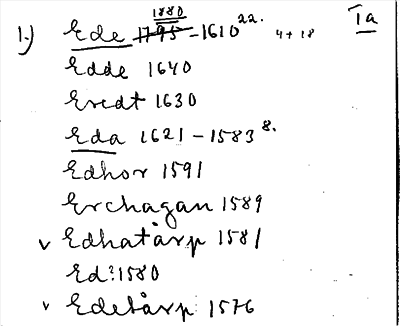 1.) Ede 1795 1880 -1610 22. 4+18 Ia
Edde 1640
Eredt 1630
Eda 1621-1583 8.
Edhor 1591
Erchagan 1589
v Edhatårp 1581
Ed?1580
v Edetårp: 1576